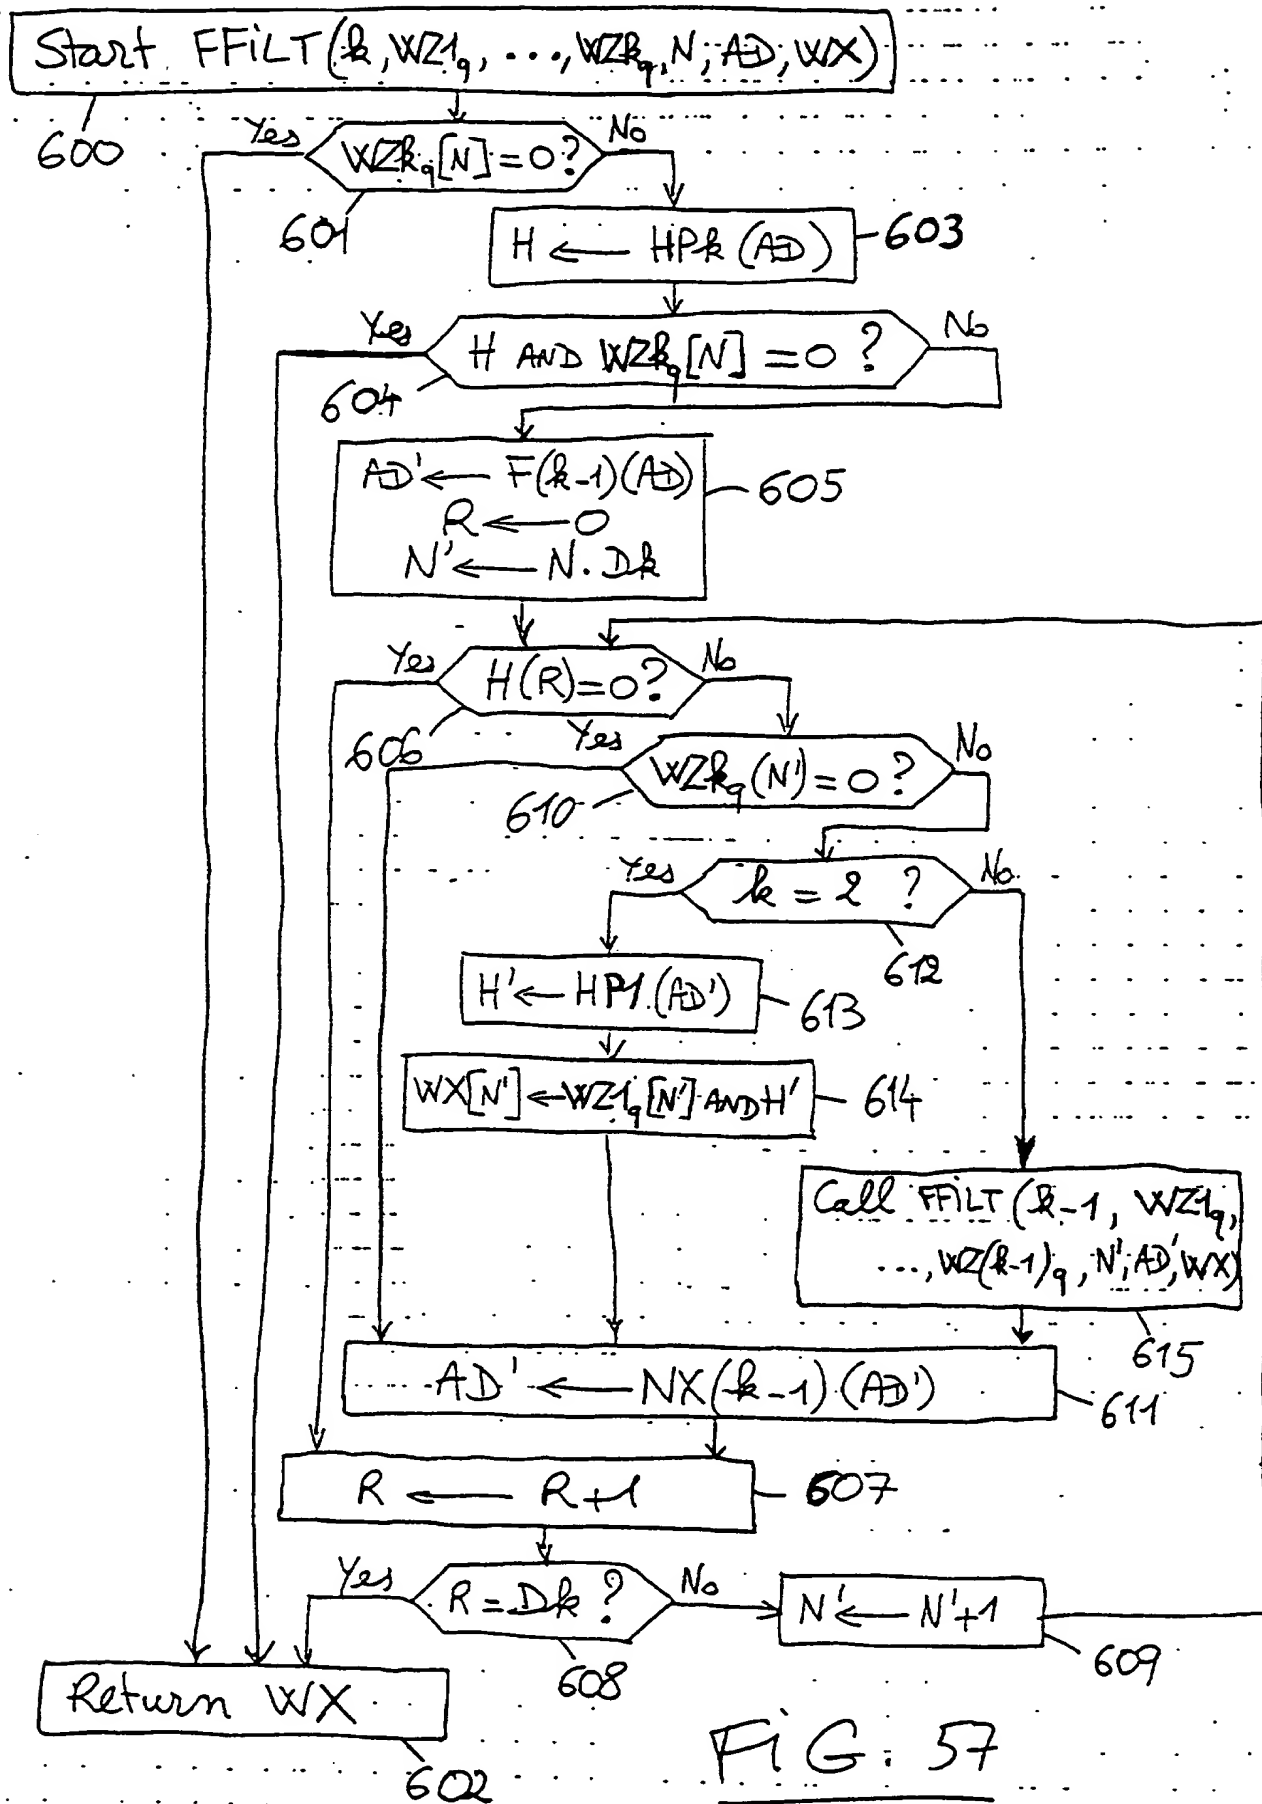 Start FFiLT(k,WZ1q, ..., WZkq, N; AD; WX)
600
Yes
WZkq[N]=0?
No
601
H ← HPk(AD)
603
Yes
H AND WZkq[N] = 0 ?
No
604
AD' ← F(k-1)(AD)
R ← 0
N' ← N.Dk
605
Yes
H(R)=0?
No
606
Yes
WZkq(N')=0?
No
610
Yes
k = 2 ?
No
612
H' ← HP1(AD')
613
WX[N'] ← WZ1q[N'] AND H'
614
Call FFiLT(k-1, WZ1q,
..., WZ(k-1)q, N'; AD', WX)
615
AD' ← NX(k-1)(AD')
611
R ← R+1
607
Yes
R=Dk?
No
608
N' ← N'+1
609
Return WX
602
FiG. 57